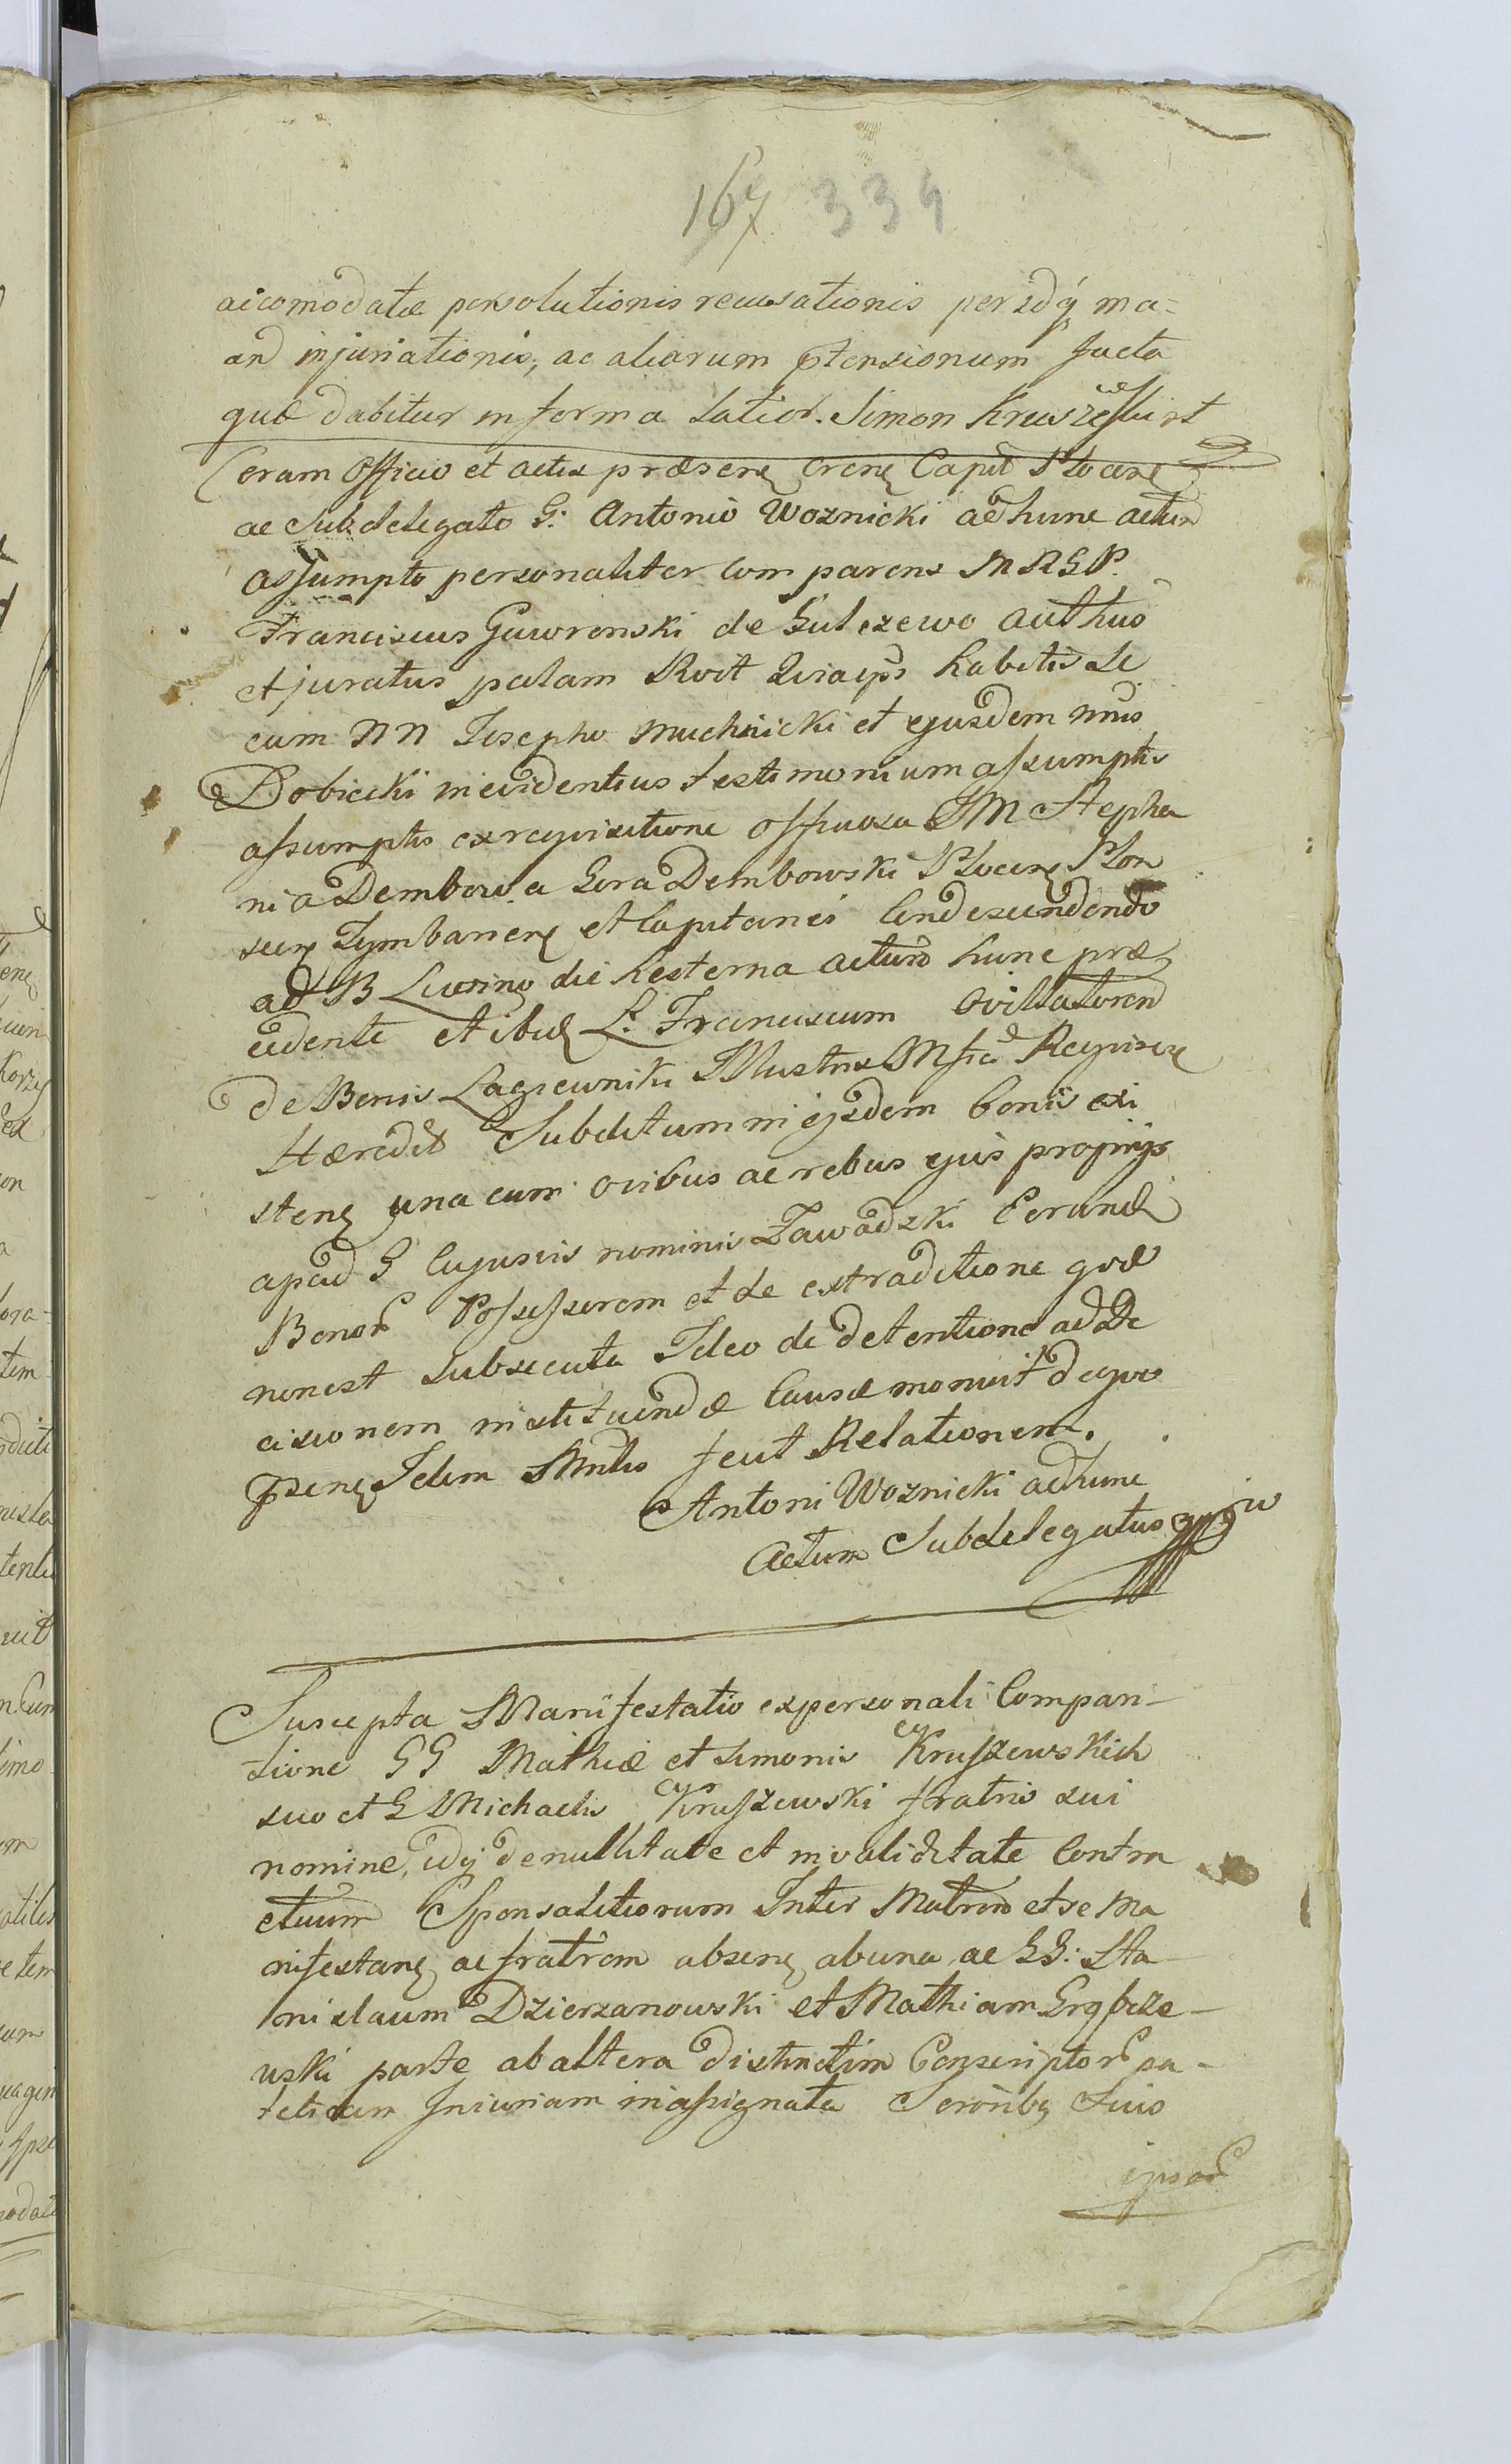 167 334
accomodatæ persolutionis recusationis per idq ma=
and injuriationis, ac aliarum ptensionum facta
quæ dabitur in forma latior. Simon Kruszewski st
Coram Officio et actis præsene Crene Capit Plocene
ac Subdelegato G: Antonio Woznicki ad hunc actum
assumpto personaliter comparens MRGP.
Franciscus Gawronski de Gulczewo authus
et juratus palam Rvit habitis Se
cum NN Josepho Muchnicki et ejusdem nnis
Dobiecki in evidentius testimonium assumptis
assumptis ex requisitione officiosa JM Stepha
ni a Dembowa Gora Dembowski Plocene Plon
scene Tymbariene et Capitanei Condescendendo
ad B die hesterna actum hunc præ
cedente et ibid L. Franciscum Ovillatorem
de Bonis Lagiewniki Illustris Mfici
Hæredit Subditum in ejsdem bonis exi
stene una cum ovibus ac rebus ejus proprijs
apud G Cujusvis nominis Zawadzki Eorund
Bonor Possessorem et de extraditione quæ
non est subsecuta Ideo de detentione ad De
cisionem instituendæ Causæ monuit de quo
psene Idem Mntlis fecit Relationem.
Antoni Woznicki ad hunc
Actum Subdelegatus
Suscepta Manifestatio ex personali Compari-
tione GG Mathiæ et Simonis Kruszewskich
suo et G Michaelis Kruszewski fratris sui
nomine, idq de nullitate et invaliditate Contra
ctuum Sponsalitiorum Inter Matrem et se Ma
nifestane ac fratrem absene ab una ac GG: Sta-
nislaum Dzierzanowski et Mathiam
wski parte ab altera distinctim Conscriptor pa-
teticam Injuriam inassignata Sororibq Suis
ipsor